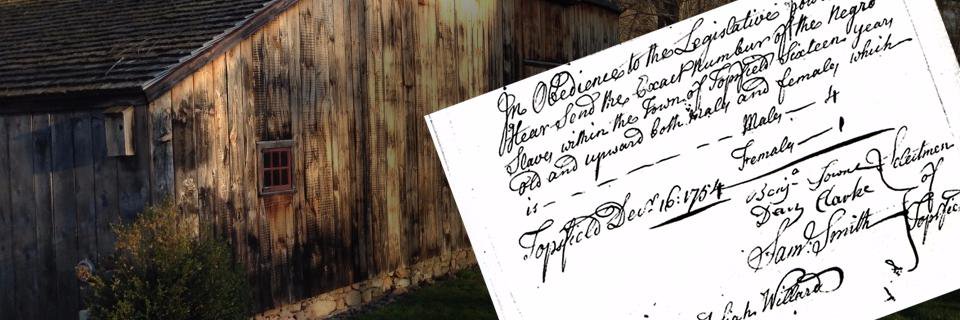 In Obedience to the Legislative
Hear Send the Exact Number of the Negro
Slaves within the Town of Topsfield Sixteen years
old and upward both males and females which
is
Males — 4
Females — 1
Topsfield Decr 16: 1754
Benja Towne
Davd Clarke
Saml Smith
Selectmen
of
Topsfie
Willard